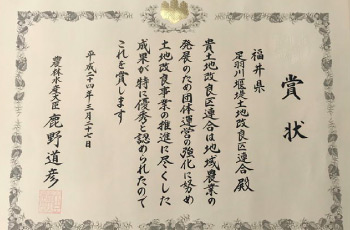 賞状
福井県
足羽川堰堤土地改良区連合 殿
貴土地改良区連合は地域農業の
発展のため団体運営の強化に努め
土地改良事業の推進に尽くした
成果が特に優秀と認められたので
これを賞します
平成二十四年三月二十七日
農林水産大臣 鹿野道彦